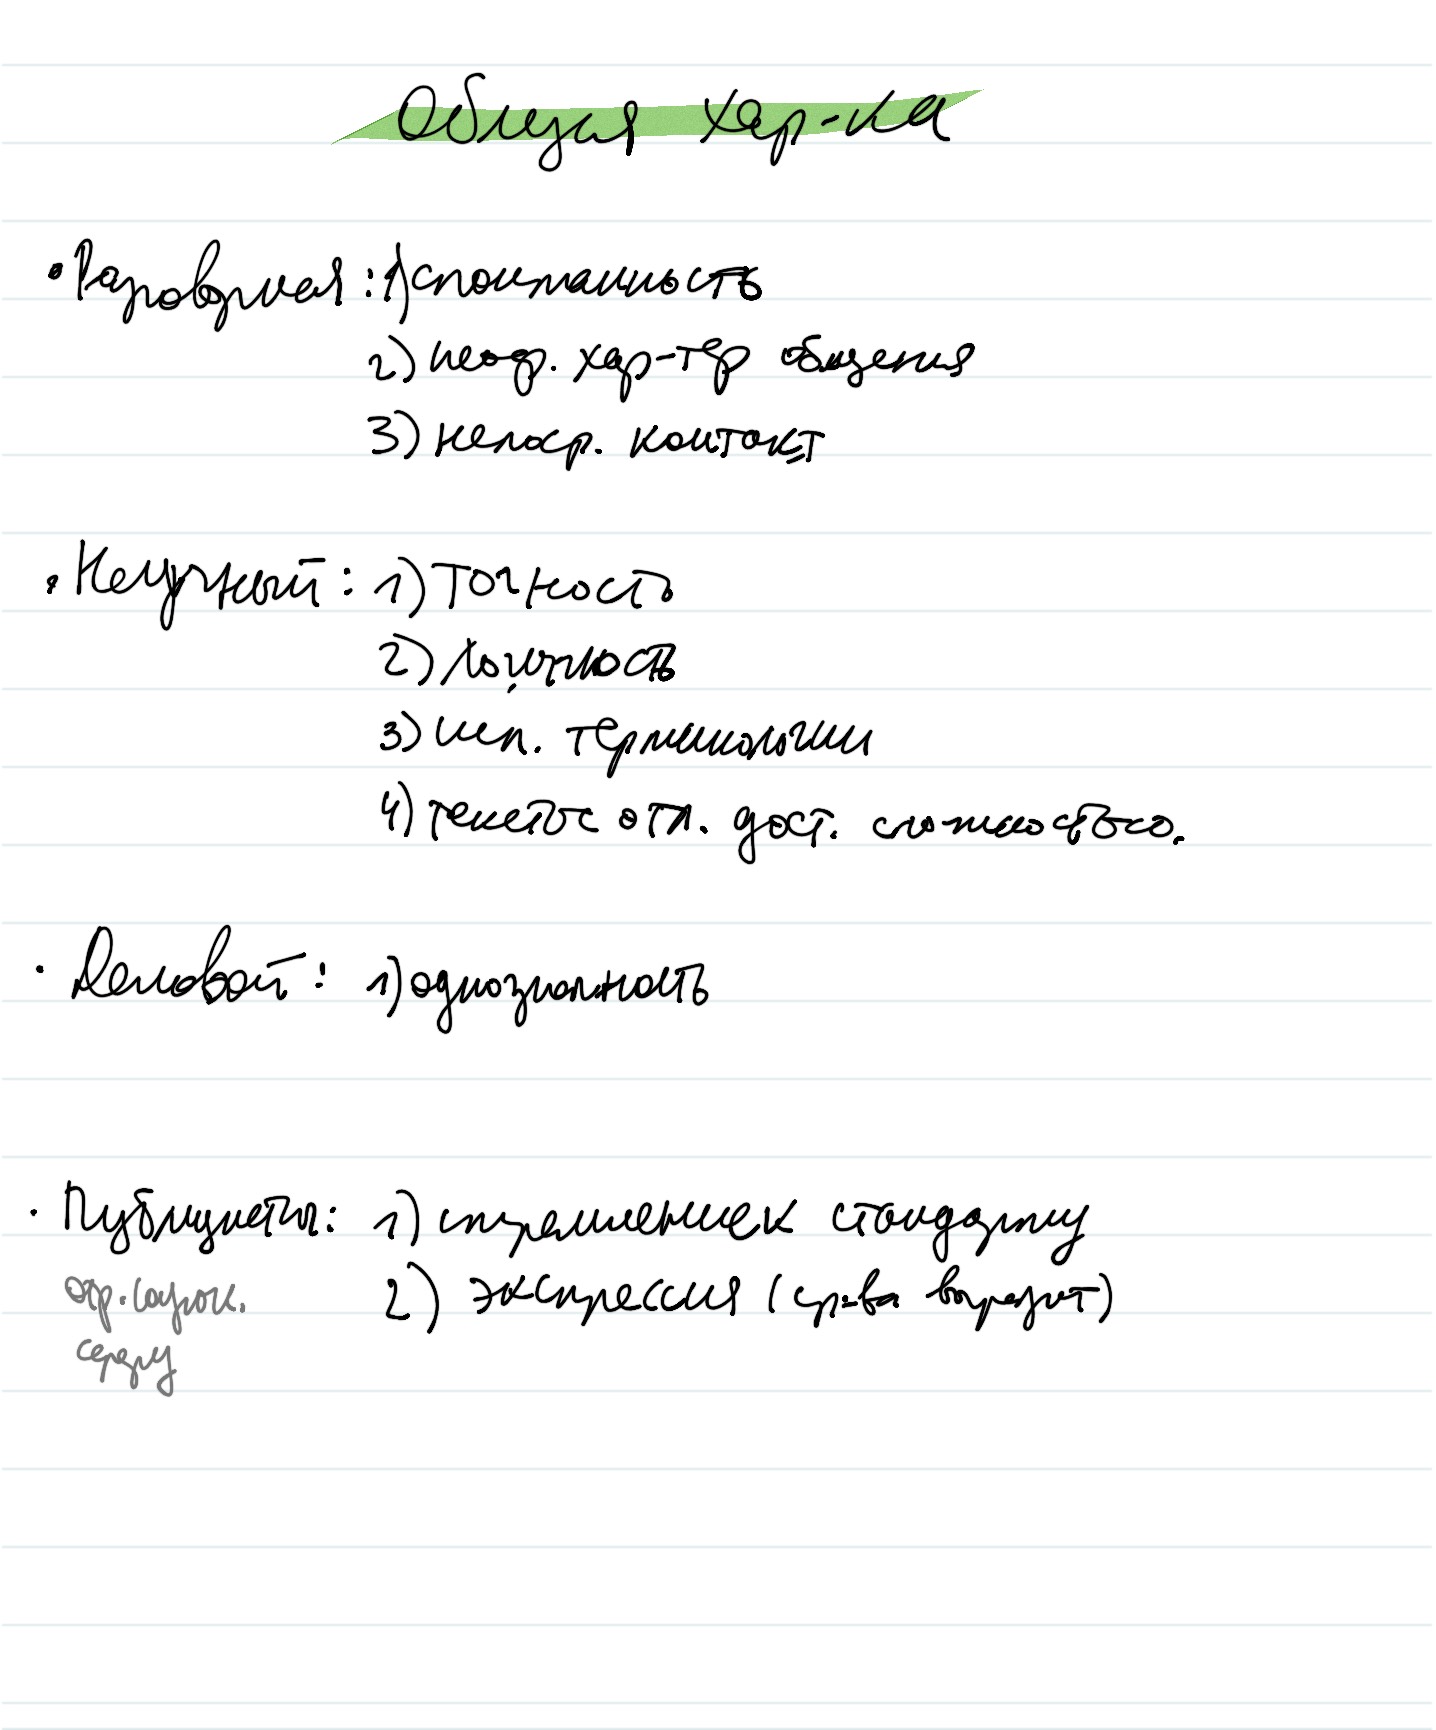 Общая хар-ка
• Разговорная: 1) спонтанность
2) неоф. хар-тер общения
3) непоср. контакт
• Научный: 1) точность
2) логичность
3) исп. терминологии
4) тексты отл. дост. сложностью.
• Деловой: 1) однозначность
• Публицисты: 1) стремление к стандарту
2) экспрессия (ср-ва выразит)